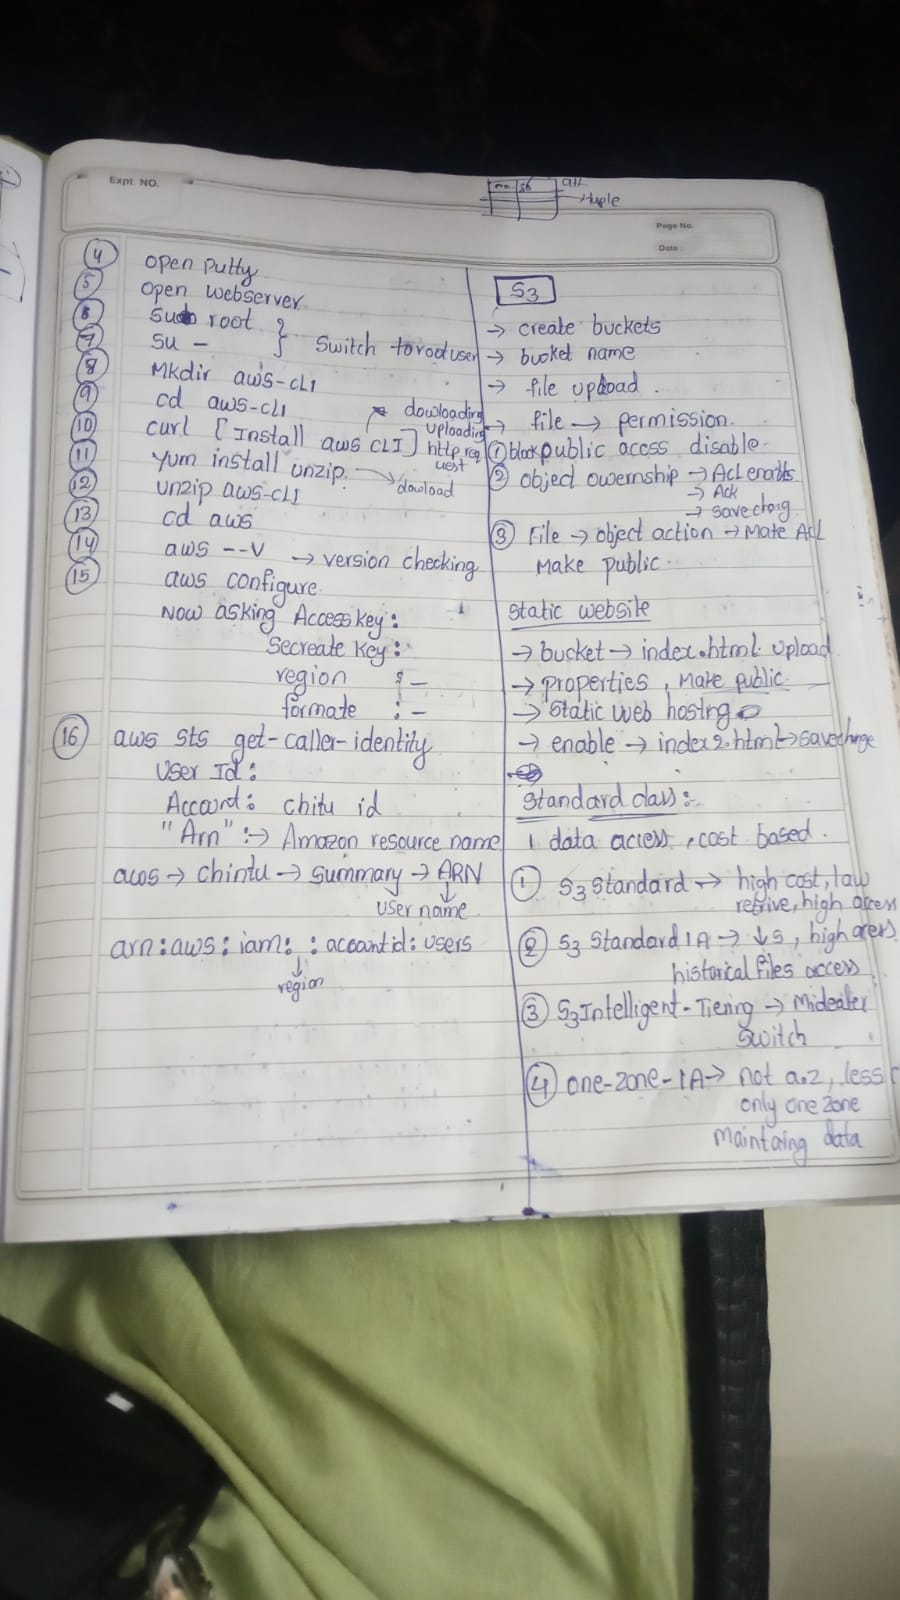 Expt. NO.
Page No.
Date :
4 open putty
5 open webserver
6 sudo root
7 su - } Switch to root user
8 Mkdir aws-cli
9 cd aws-cli
dowloading
uploading
10 curl [Install aws CLI] http req
uest
11 yum install unzip. → dowload
12 unzip aws-cli
13 cd aws
14 aws --V → version checking
15 aws configure
Now asking Access key :
Secreate key :
region : -
formate : -
16 aws sts get-caller-identity
User Id :
Account : chitu id
"Arn" :→ Amazon resource name
→ chintu → summary → ARN
↓
User name
arn : aws : iam : : accountid : users
↓
region
S3
→ create buckets
→ bucket name
→ file upload .
→ file → permission.
① block public acess disable.
② object owernship → ACL
→ Ack
→ save
③ File → object action → Make ACL
Make public.
static website
→ bucket → index.html upload
→ properties , Make public.
→ Static web hosting
→ enable → index2.html → save
Standard class :-
data access , cost based .
① S3 Standard → high cost, low
retrive, high access
② S3 Standard IA → ↓ s , high
historical files access
③ S3 Intelligent - Tiering →
Switch
④ one-zone-IA → not a.z, less
only one zone
Maintaing data